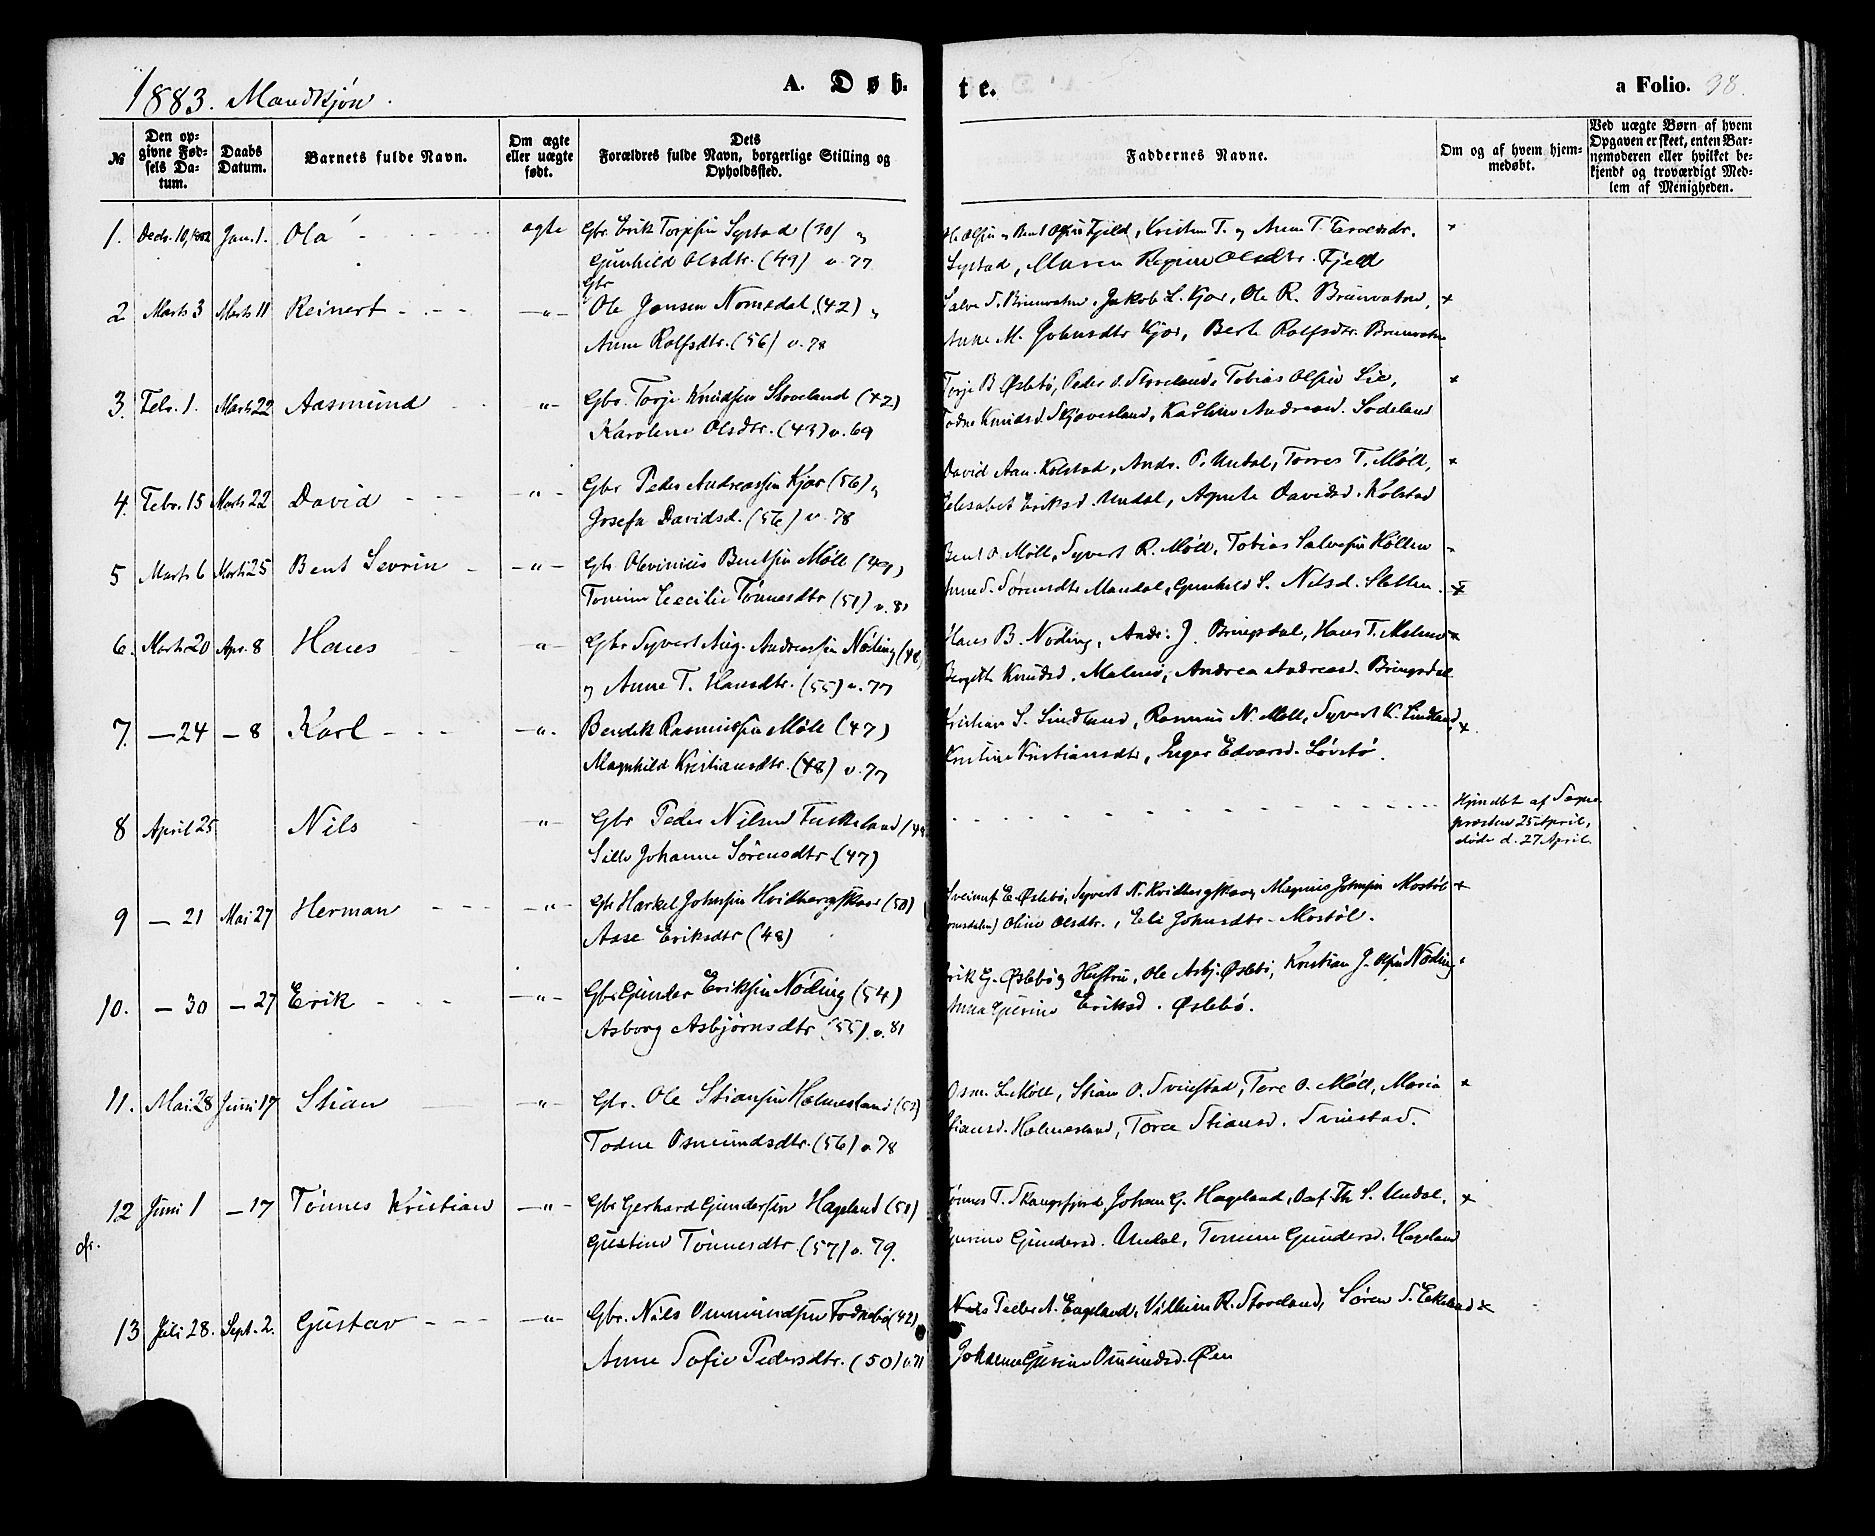 1883. Mandkjøn.
A. Døb-
te.
a Folio. 98.
№
Den op-
givne Fød-
sels Da-
tum.
Daabs
Datum.
Barnets fulde Navn.
Om ægte
eller uægte
født.
Dets
Forældres fulde Navn, borgerlige Stilling og
Opholdssted.
Faddernes Navne.
Om og af hvem hjem-
medøbt.
Ved uægte Børn af hvem
Opgaven er skeet, enten Bar-
nemoderen eller hvilket be-
kjendt og troværdigt Med-
lem af Menigheden.
1. Decbr. 10, 1882 Jan. 1. Ola ægte Gbr. Erik Torjesen Systad (30) og
Gunhild Olsdtr. (49) v. 77
Systad, Maren Regine Olsdtr. Fjeld
2 Marts 3 Marts 11 Reinert —"— Gbr Ole Jensen Nomedal, (42) og
Anne Rolfsdtr. (56) v. 78
Salve S. Brunvatne, Jakob L. Kjær, Ole R. Brunvatne, ×
Anne M. Johnsdtr Kjær, Berte Rolfsdtr. Brunvatne
3. Febr. 1. Marts 22 Aasmund —"— Gbr. Torje Knudsen Stoveland (42)
Karoline Olsdtr. (43) v. 69
Torje B Øslebø, Peder O. Stoveland, Tobias Olsen Lie, ×
Todne Knudsd. Skjævesland, Karoline Andreasd. Sodeland
4. Febr. 15 Marts 22 David —"— Gbr Peder Andreassen Kjær (56) og
Josefa Davidsd. (56) v. 78
David Aan. Kolstad, Andr. P. Undal, Torres T. Møll, ×
Elisabet Eriksd. Undal, Agnete Davidsd. Kolstad
5 Marts 6 Marts 25 Bent Sevrin —"— Gbr. Olevinius Bentsen Møll (49)
Tomine Cecilie Tønnesdtr (51) v. 81
Bent O. Møll, Syvert R. Møll, Tobias Salvesen Holten
Sørensdtr Mandal, Gunhild S. Nilsd. Sletten. ×
6. Marts 20 Apr. 8 Hans —"— Gbr Syvert Aug. Andreassen Nøding (48)
og Anne T. Hansdtr. (55) v. 77
Hans B. Nøding, Andr. J. Bringsdal, Hans T. Malmø ×
Bergitte Knudsd. Malmø, Andrea Andreasd. Bringsdal
7. — 24 — 8 Karl —"— Bendik Rasmussen Møll (47)
Magnhild Kristiansdtr. (48) v. 77
Kristian S. Lindland, Rasmus N. Møll, Syvert K. Lindland, ×
Kristine Kristiansdtr, Inger Edvardsd. Løvstø.
8 April 25 Nils —"— Gbr Peder Nilsen Fuskeland (48
Sille Johanne Sørensdtr (47)
Hjmdbt af Sogne
præsten 25 April,
døde d. 27 April.
9 — 21 Mai 27 Herman —"— Gbr Harkel Johnsen Hvidbergskaar (50)
Aase Eriksdtr (48)
Sveinuf E. Øslebø, Syvert N. Hvidbergskaar, Magnus Johnsen Mostøl ×
Oline Olsdtr., Eli Johnsdtr. Mostøl.
10. — 30 — 27 Erik —"— Gbr Gunder Eriksen Nøding (54)
Asborg Asbjørnsdtr (55) v. 81
Erik G. Øslebø og Hustru, Ole Asbj. Øslebø, Kristian J. Olsen Nøding
Anna Gurine Eriksd. Øslebø.
11. Mai 28 Juni 17 Stian —"— Gbr. Ole Stiansen Holmesland (52)
Todne Osmundsdtr. (56) v. 78
Osm. L. Møll, Stian O. Svinstad, Tore O. Møll, Maria ×
Stiansd. Holmesland, Torea Stiansd. Svinstad.
12 Juni 1 — 17 Tønnes Kristian —"— Gbr Gerhard Gundersen Hageland (50)
Gustine Tønnesdtr (57) v. 79.
cfr.
Tønnes T. Skaugsfjord, Johan G. Hageland, Th. S. Undal, ×
Gurine Gundersd. Undal, Tomine Gundersd. Hageland
13 Juli 28. Sept. 2. Gustav —"— Gbr. Nils Ommundsen Fodnebø (42)
Anne Sofie Pedersdtr. (50) v. 71
Nils Peder A. Engeland, Vilhelm R. Stoveland, Søren S. Eikeland ×
Johanne Gurine Omundsd. Øen